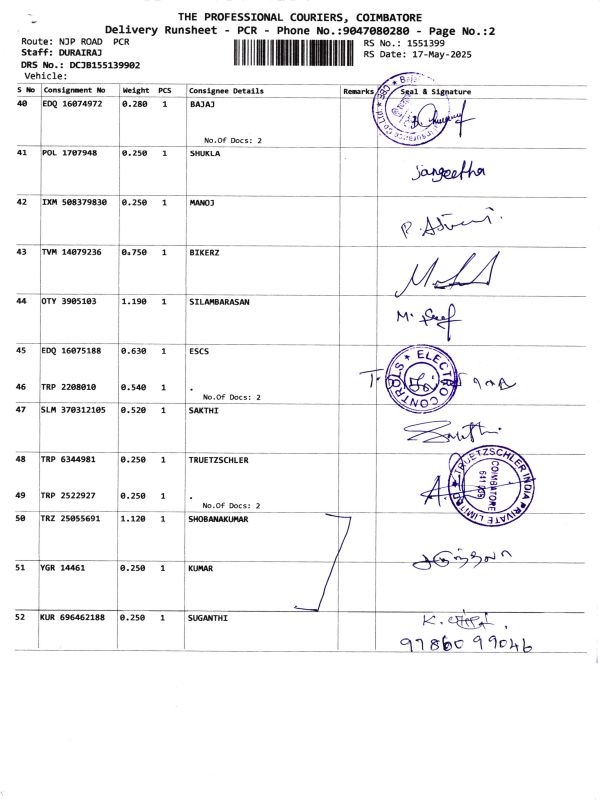 THE PROFESSIONAL COURIERS, COIMBATORE
Delivery Runsheet - PCR - Phone No.:9047080280 - Page No.:2
Route: NJP ROAD PCR
RS No.: 1551399
Staff: DURAIRAJ
RS Date: 17-May-2025
DRS No.: DCJB155139902
Vehicle:
S No Consignment No Weight PCS Consignee Details Remarks Seal & Signature
40 EDQ 16074972 0.280 1 BAJAJ
No.Of Docs: 2
41 POL 1707948 0.250 1 SHUKLA
Sangeetha
42 IXM 508379830 0.250 1 MANOJ
43 TVM 14079236 0.750 1 BIKERZ
44 OTY 3905103 1.190 1 SILAMBARASAN
45 EDQ 16075188 0.630 1 ESCS
ELECTRO CONTROLS
46 TRP 2208010 0.540 1 .
No.Of Docs: 2
47 SLM 370312105 0.520 1 SAKTHI
48 TRP 6344981 0.250 1 TRUETZSCHLER
TRUETZSCHLER INDIA PRIVATE LIMITED
COIMBATORE
49 TRP 2522927 0.250 1 .
No.Of Docs: 2
50 TRZ 25055691 1.120 1 SHOBANAKUMAR
51 YGR 14461 0.250 1 KUMAR
52 KUR 696462188 0.250 1 SUGANTHI
97860 99046